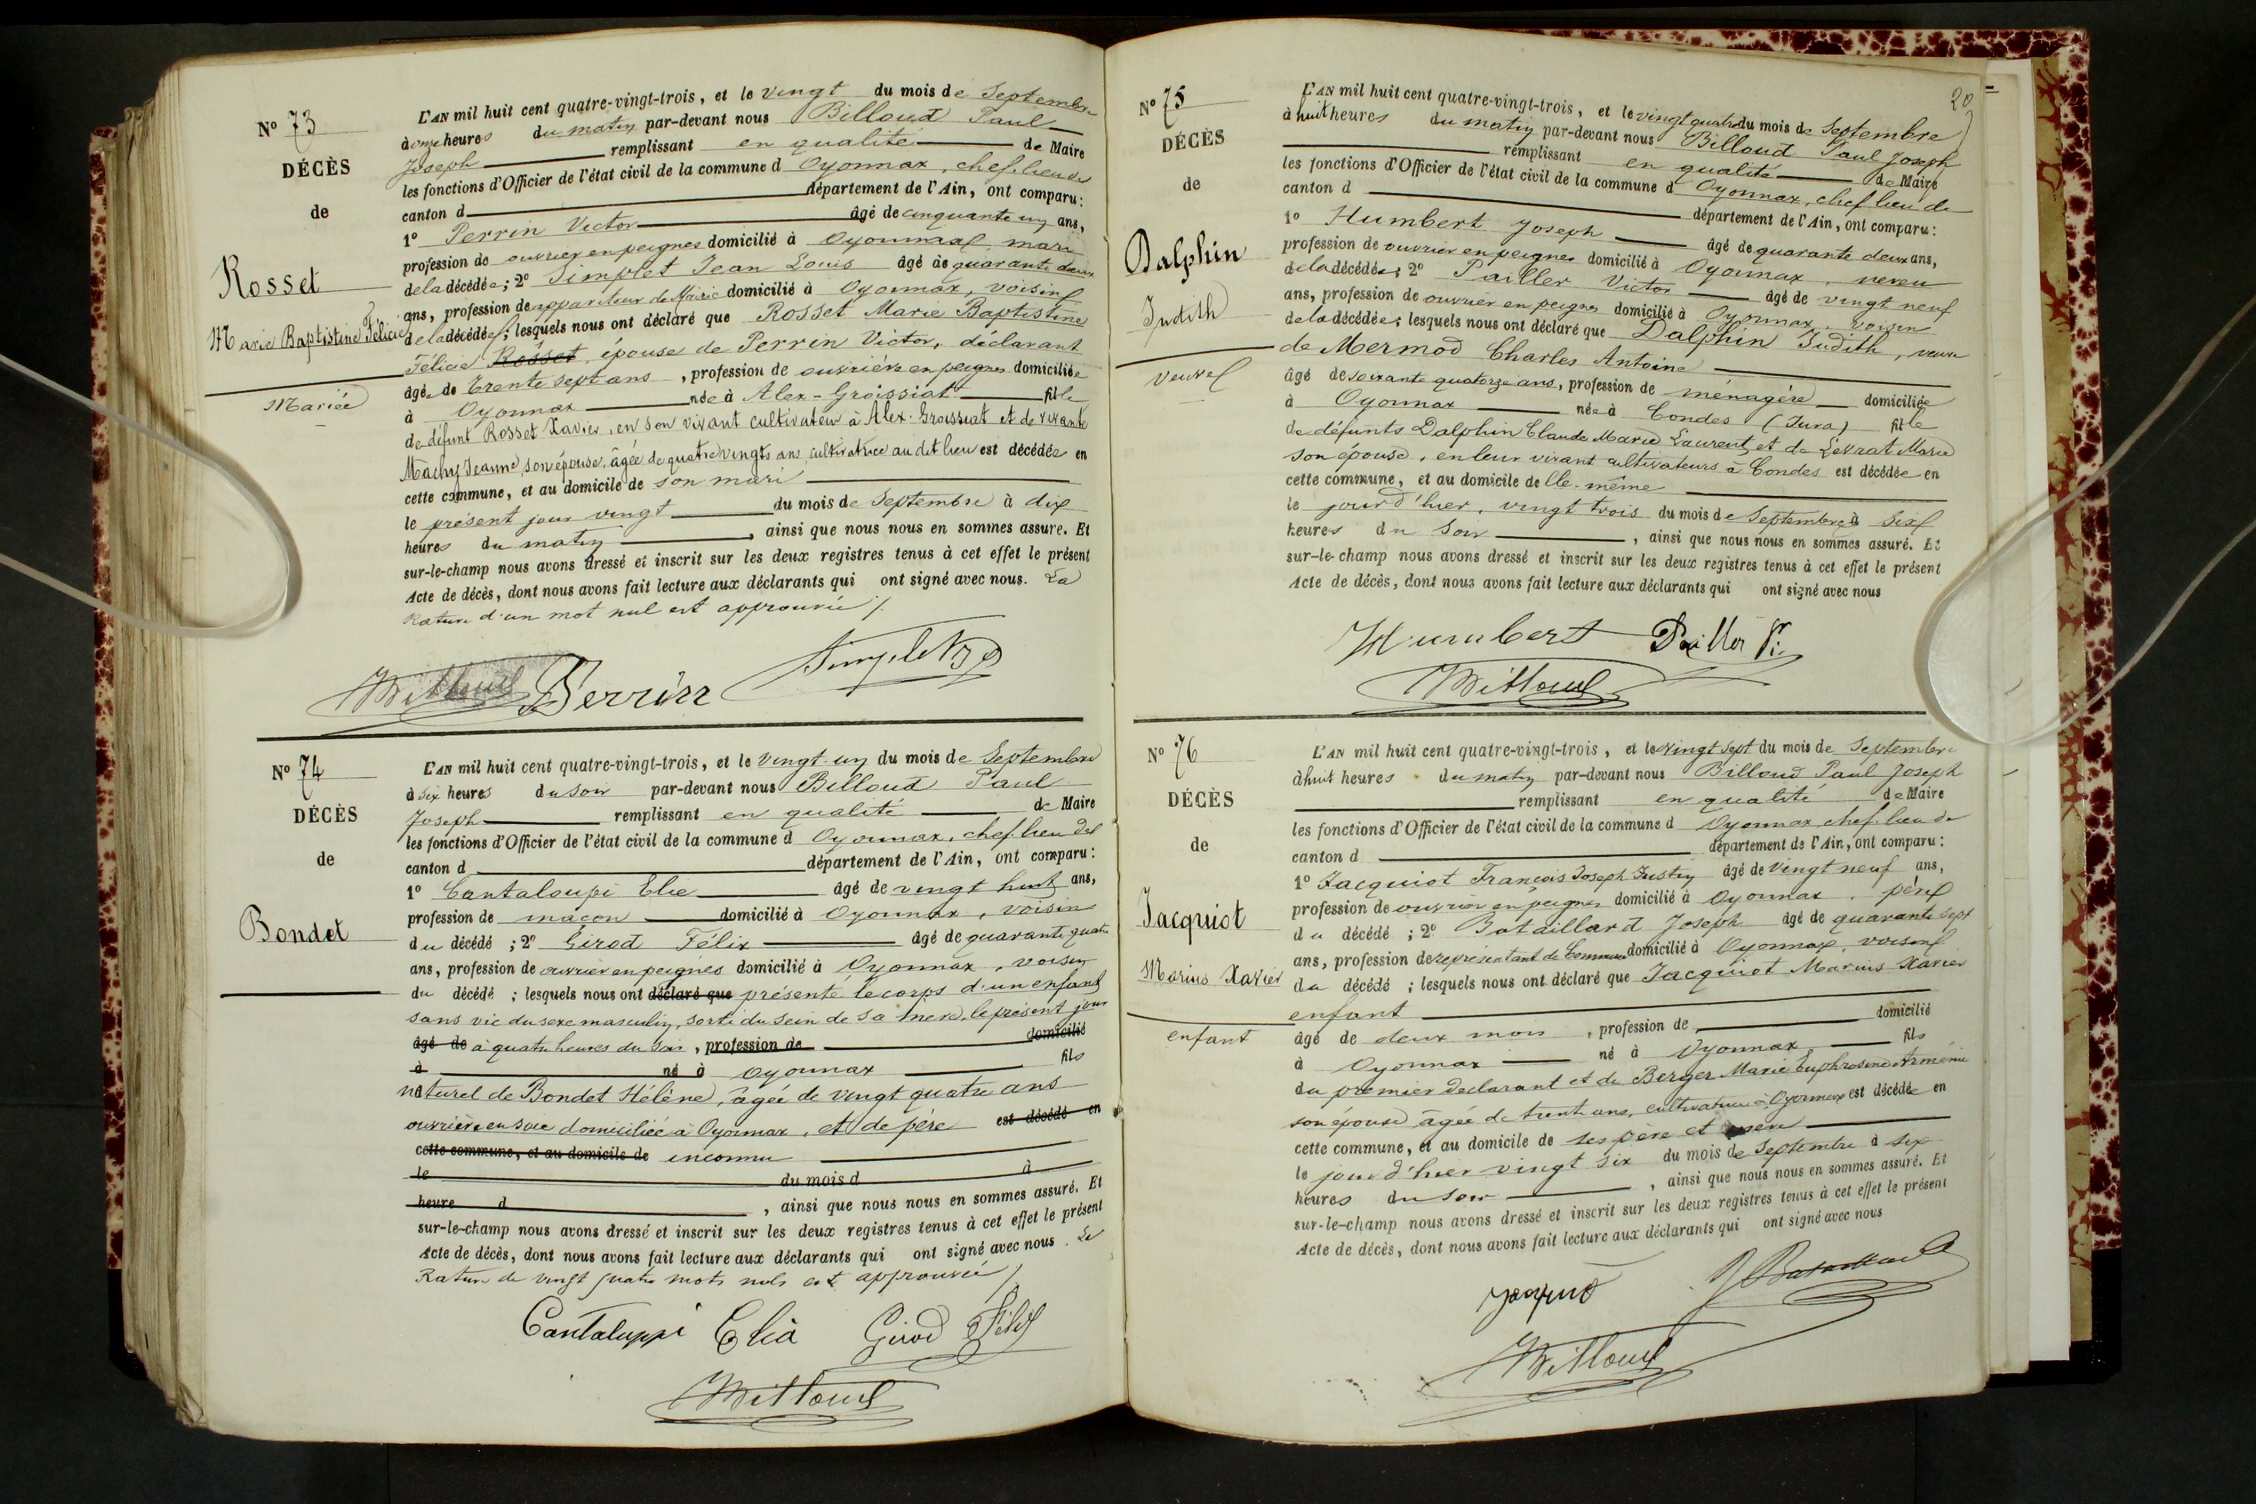 N° 73
DÉCÈS
de
Rosset
Marie Baptistine Félicie
Mariée
L'AN mil huit cent quatre-vingt-trois, et le vingt du mois de Septembre
à onze heures du matin par-devant nous Billoud Paul
Joseph remplissant en qualité de Maire
les fonctions d'Officier de l'état civil de la commune d Oyonnax, chef-lieu de
canton d département de l'Ain, ont comparu :
1° Perrin Victor âgé de cinquante un ans,
profession de ouvrier en peignes domicilié à Oyonnax mari
de la décédée ; 2° Simplet Jean Louis âgé de quarante deux
ans, profession de appariteur de Mairie domicilié à Oyonnax, voisin
de la décédée ; lesquels nous ont déclaré que Rosset Marie Baptistine
Félicie Rosset épouse de Perrin Victor, déclarant
âgée de trente sept ans, profession de ouvrière en peignes domiciliée
à Oyonnax née à Alex-Groissiat fille
de défunt Rosset Xavier, en son vivant cultivateur à Alex-Groissiat et de vivante
Machy Jeanne, son épouse, âgée de quatre vingts ans cultivatrice au dit lieu est décédée en
cette commune, et au domicile de son mari
le présent jour vingt du mois de Septembre à dix
heures du matin, ainsi que nous nous en sommes assuré. Et
sur-le-champ nous avons dressé et inscrit sur les deux registres tenus à cet effet le présent
Acte de décès, dont nous avons fait lecture aux déclarants qui ont signé avec nous. La
Rature d'un mot nul est approuvée /.
Billoud Perrin Simplet
N° 74
DÉCÈS
de
Bondet
L'AN mil huit cent quatre-vingt-trois, et le vingt-un du mois de Septembre
à six heures du soir par-devant nous Billoud Paul
Joseph remplissant en qualité de Maire
les fonctions d'Officier de l'état civil de la commune d Oyonnax, chef-lieu de
canton d département de l'Ain, ont comparu :
1° Cantaloupi Elie âgé de vingt huit ans,
profession de maçon domicilié à Oyonnax, voisin
du décédé ; 2° Girod Félix âgé de quarante quatre
ans, profession de ouvrier en peignes domicilié à Oyonnax, voisin
du décédé ; lesquels nous ont déclaré que présenté le corps d'un enfant
sans vie du sexe masculin, sorti du sein de sa mère, le présent jour
âgé de à quatre heures du soir, profession de domicilié
à né à Oyonnax fils
naturel de Bondet Hélène, âgée de vingt quatre ans
ouvrière en soie domiciliée à Oyonnax, et de père est décédé en
cette commune, et au domicile de inconnu
le du mois d à
heure d , ainsi que nous nous en sommes assuré. Et
sur-le-champ nous avons dressé et inscrit sur les deux registres tenus à cet effet le présent
Acte de décès, dont nous avons fait lecture aux déclarants qui ont signé avec nous. La
Rature de vingt quatre mots nuls est approuvée /
Cantaluppi Elia Girod Félix
Billoud
20
N° 75
DÉCÈS
de
Dalphin
Judith
veuve
L'AN mil huit cent quatre-vingt-trois, et le vingt quatre du mois de Septembre
à huit heures du matin par-devant nous Billoud Paul Joseph
remplissant en qualité de Maire
les fonctions d'Officier de l'état civil de la commune d Oyonnax, chef lieu de
canton d département de l'Ain, ont comparu :
1° Humbert Joseph âgé de quarante deux ans,
profession de ouvrier en peignes domicilié à Oyonnax, neveu
de la décédée ; 2° Pailler Victor âgé de vingt neuf
ans, profession de ouvrier en peignes domicilié à Oyonnax, voisin
de la décédée ; lesquels nous ont déclaré que Dalphin Judith, veuve
de Mermod Charles Antoine
âgé de soixante quatorze ans, profession de ménagère domiciliée
à Oyonnax née à Condes (Jura) fille
de défunts Dalphin Claude Marie Laurent et de Levrat Marie
son épouse, en leur vivant cultivateurs à Condes est décédée en
cette commune, et au domicile de lle-même
le jour d'hier, vingt trois du mois de Septembre à six
heures du soir, ainsi que nous nous en sommes assuré. Et
sur-le-champ nous avons dressé et inscrit sur les deux registres tenus à cet effet le présent
Acte de décès, dont nous avons fait lecture aux déclarants qui ont signé avec nous
Humbert Pailler
Billoud
N° 76
DÉCÈS
de
Jacquiot
Marius Xavier
enfant
L'AN mil huit cent quatre-vingt-trois, et le vingt sept du mois de Septembre
à huit heures du matin par-devant nous Billoud Paul Joseph
remplissant en qualité de Maire
les fonctions d'Officier de l'état civil de la commune d Oyonnax chef-lieu de
canton d département de l'Ain, ont comparu :
1° Jacquiot François Joseph Justin âgé de vingt neuf ans,
profession de ouvrier en peignes domicilié à Oyonnax, père
du décédé ; 2° Bataillard Joseph âgé de quarante sept
ans, profession de représentant de Commerce domicilié à Oyonnax, voisin
du décédé ; lesquels nous ont déclaré que Jacquiot Marius Xavier
enfant
âgé de deux mois, profession de domicilié
à Oyonnax né à Oyonnax fils
du premier déclarant et de Berger Marie Euphrosine Arménie
son épouse âgée de trente ans, cultivatrice à Oyonnax est décédé en
cette commune, et au domicile de ses père et mère
le jour d'hier vingt six du mois de Septembre à six
heures du soir, ainsi que nous nous en sommes assuré. Et
sur-le-champ nous avons dressé et inscrit sur les deux registres tenus à cet effet le présent
Acte de décès, dont nous avons fait lecture aux déclarants qui ont signé avec nous
Jacquiot J Bataillard
Billoud